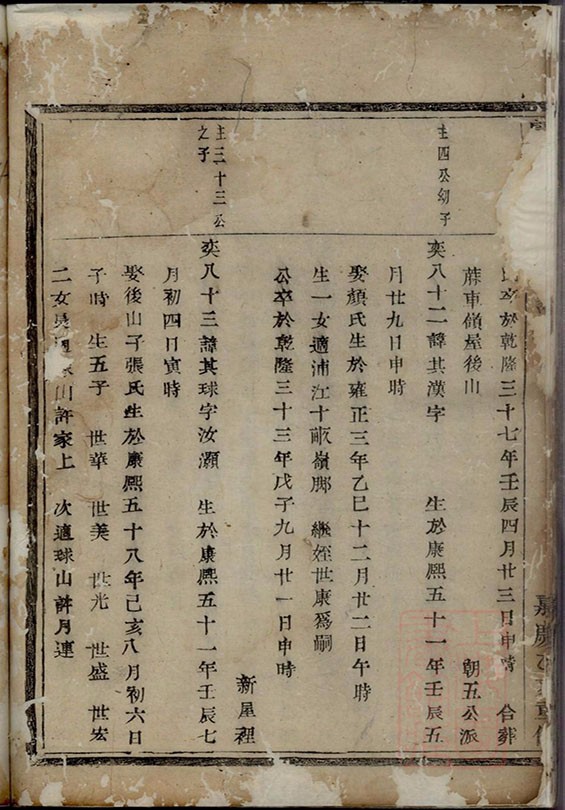 卒於乾隆三十七年壬辰四月廿三日申時 合葬
蔴車嶺屋後山 朝五公派
主四公幼子
奕八十二諱其漢字 生於康熙五十一年壬辰五
月廿九日申時
娶顏氏生於雍正三年乙巳十二月廿二日午時
生一女適浦江十畝嶺脚 繼姪世康爲嗣
公卒於乾隆三十三年戊子九月廿一日申時
新屋裡
主三十三公
之子
奕八十三諱其球字汝灝 生於康熙五十一年壬辰七
月初四日寅時
娶後山子張氏生於康熙五十八年己亥八月初六日
子時 生五子 世華 世美 世光 世盛 世宏
二女長適 山許家上 次適球山許月連
嘉慶